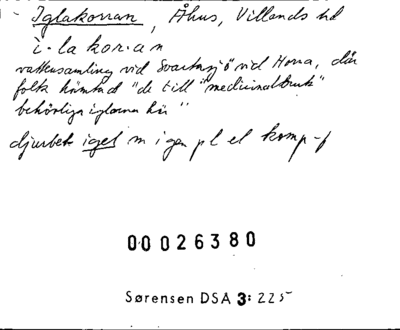 - Iglakorran, Åhus, Villands hd
i·la kor·an
vattensamling vid Svartesjö vid Horna, där
folk hämtad "de till "medicinalbruk"
behövliga iglarna här"
djurbet iget m i gen pl el komp-f
00026380
Sørensen DSA 3: 225